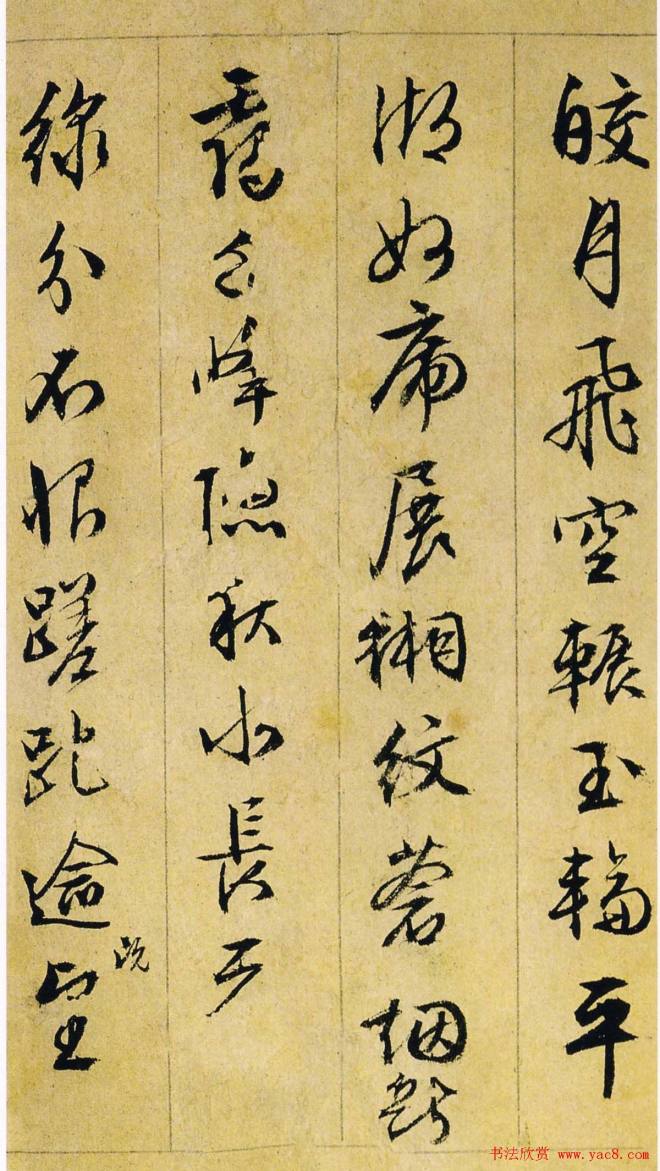 皎月飛空輾玉輪平
湖如席展緗紋蒼烟
峰隐秋水長天
綠分不恨蹉跎逾既望
书法欣赏 www.yac8.com